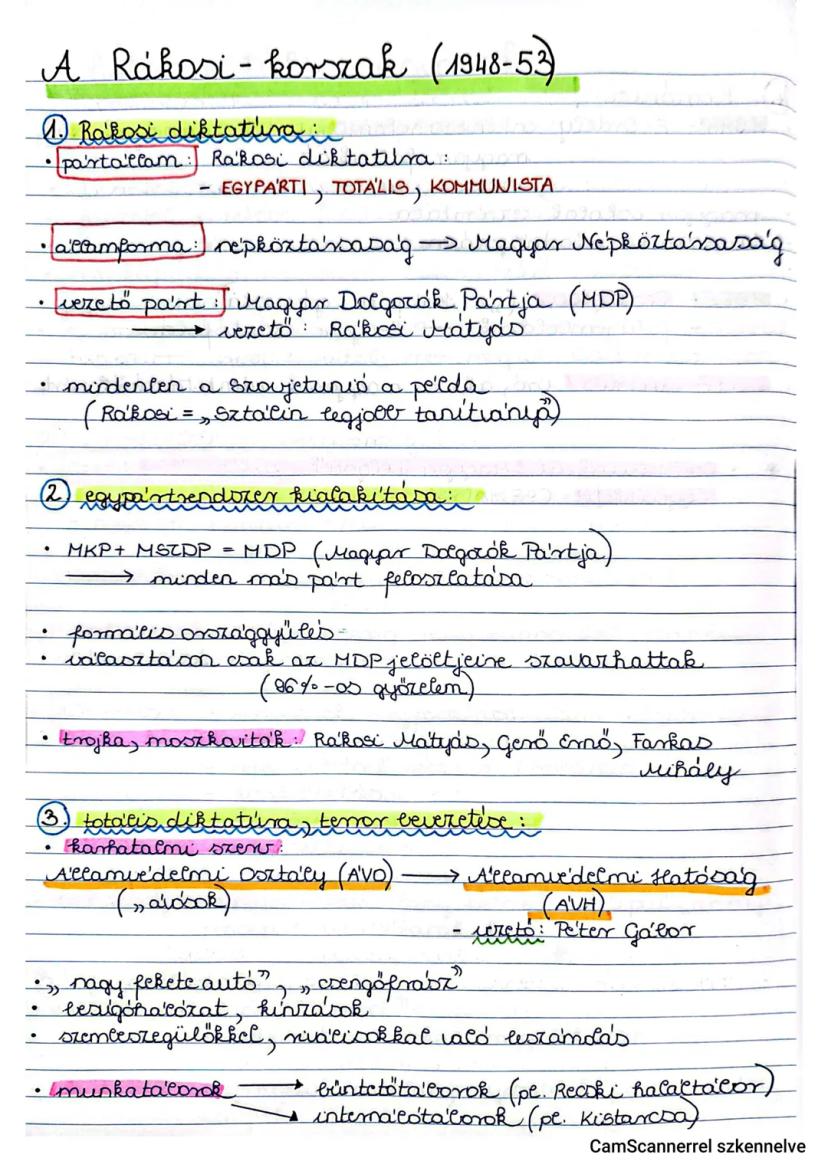 A Rákosi-korszak (1948-53)
1. Rákosi diktatúra:
• pártállam: Rákosi diktatúra:
- EGYPÁRTI, TOTÁLIS, KOMMUNISTA
• államforma: népköztársaság → Magyar Népköztársaság
• vezető párt: Magyar Dolgozók Pártja (MDP)
→ vezető: Rákosi Mátyás
• mindenben a Szovjetunió a példa
(Rákosi = „Sztálin legjobb tanítványa”)
2. egypártrendszer kialakítása:
• MKP + MSZDP = MDP (Magyar Dolgozók Pártja)
→ minden más párt feloszlatása
• formális országgyűlés
• választáson csak az MDP jelöltjeire szavazhattak
(96%-os győzelem)
• trojka, moszkoviták: Rákosi Mátyás, Gerő Ernő, Farkas
Mihály
3. totális diktatúra, terror bevezetése:
• karhatalmi szerv:
Államvédelmi Osztály (ÁVO) → Államvédelmi Hatóság
(„ávósok) (ÁVH)
- vezető: Péter Gábor
• „nagy fekete autó”, „csengőfrász”
• besúgóhálózat, kínzások
• szembeszegülőkkel, riválisokkal való leszámolás
• munkatáborok → büntetőtáborok (pl. Recski haláltábor)
→ internálótáborok (pl. Kistarcsa)
CamScannerrel szkennelve